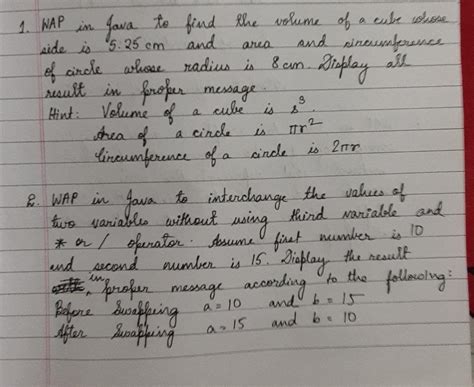 1. WAP in Java to find the volume of a cube whose
side is 5.25 cm and area and circumference
of circle whose radius is 8 cm. Display all
result in proper message.
Hint: Volume of a cube is s³.
Area of a circle is πr²
Circumference of a circle is 2πr
2. WAP in Java to interchange the values of
two variables without using third variable and
* or / operator. Assume first number is 10
and second number is 15. Display the result
in proper message according to the following:
Before Swapping a = 10 and b = 15
After Swapping a = 15 and b = 10